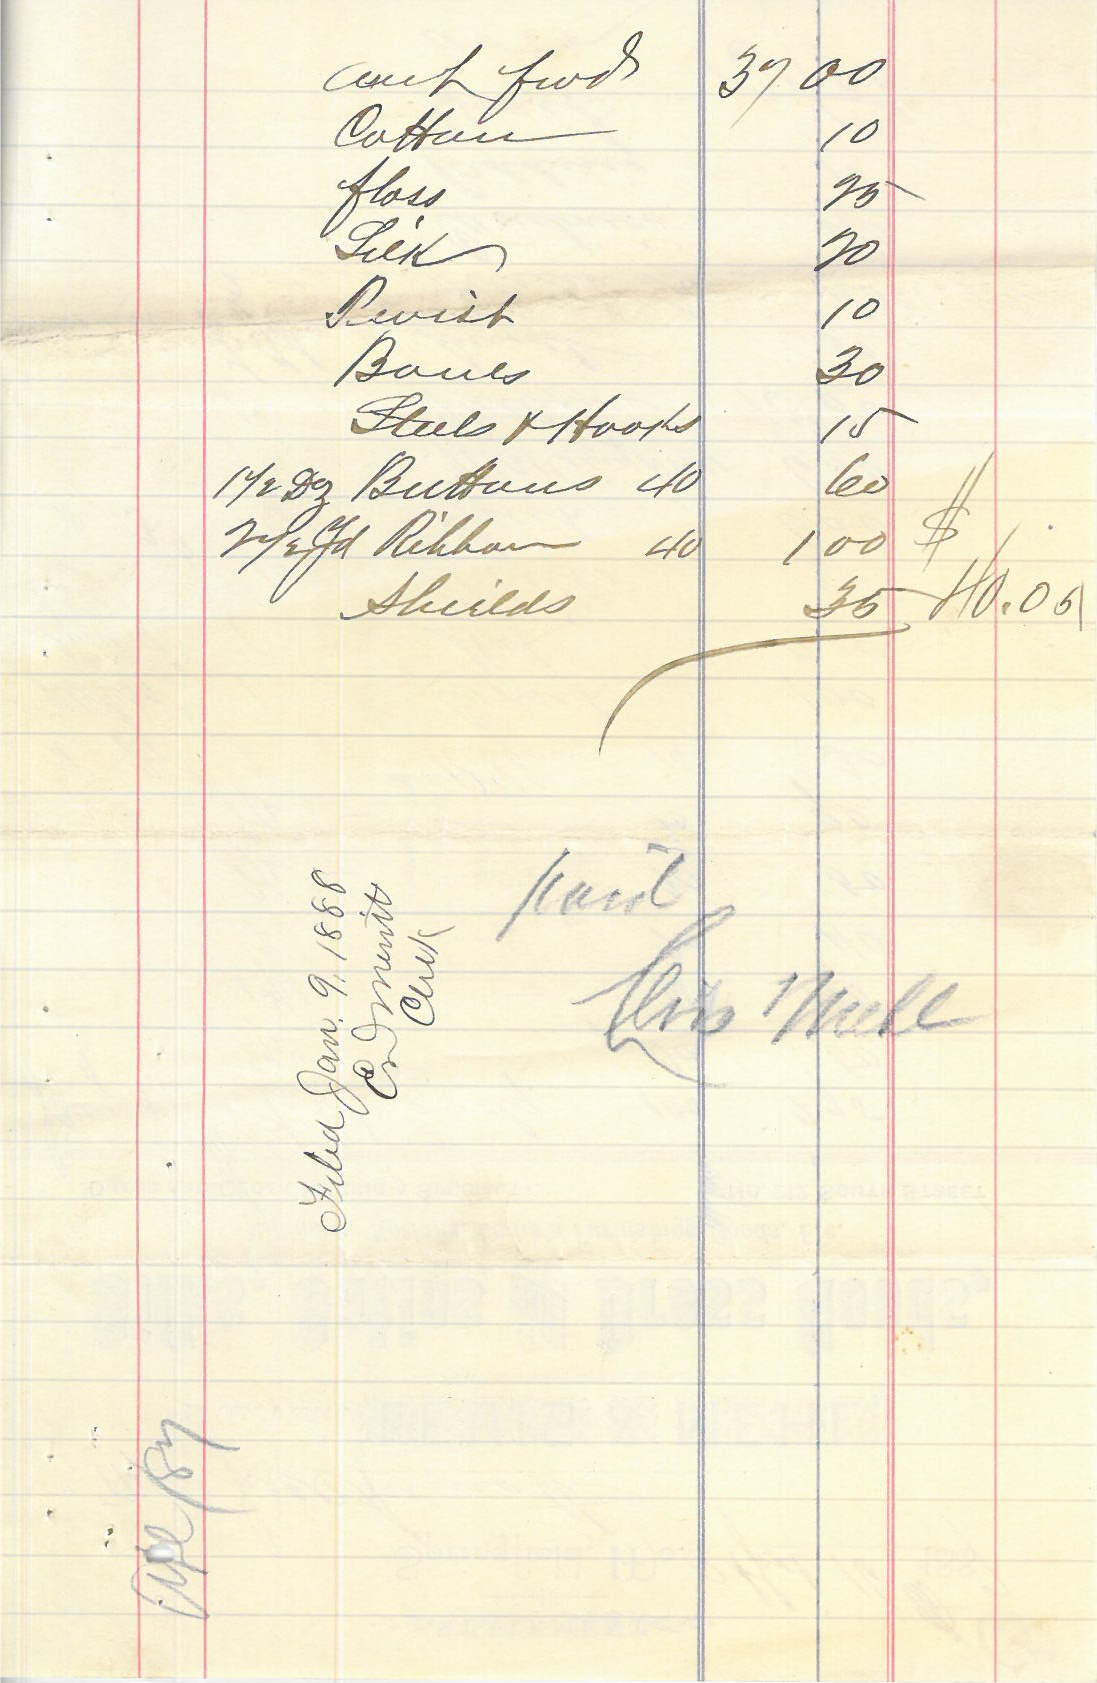 amt fwd 37 00
Cotton 10
floss 25
Silk 20
Twist 10
Bones 30
Steels & Hooks 15
1 1/2 Dz Buttons 40 60
2 1/2 Yd Ribbon 40 1 00 $
Shields 35 40.05
paid
Filed Jan. 9, 1888
Clerk